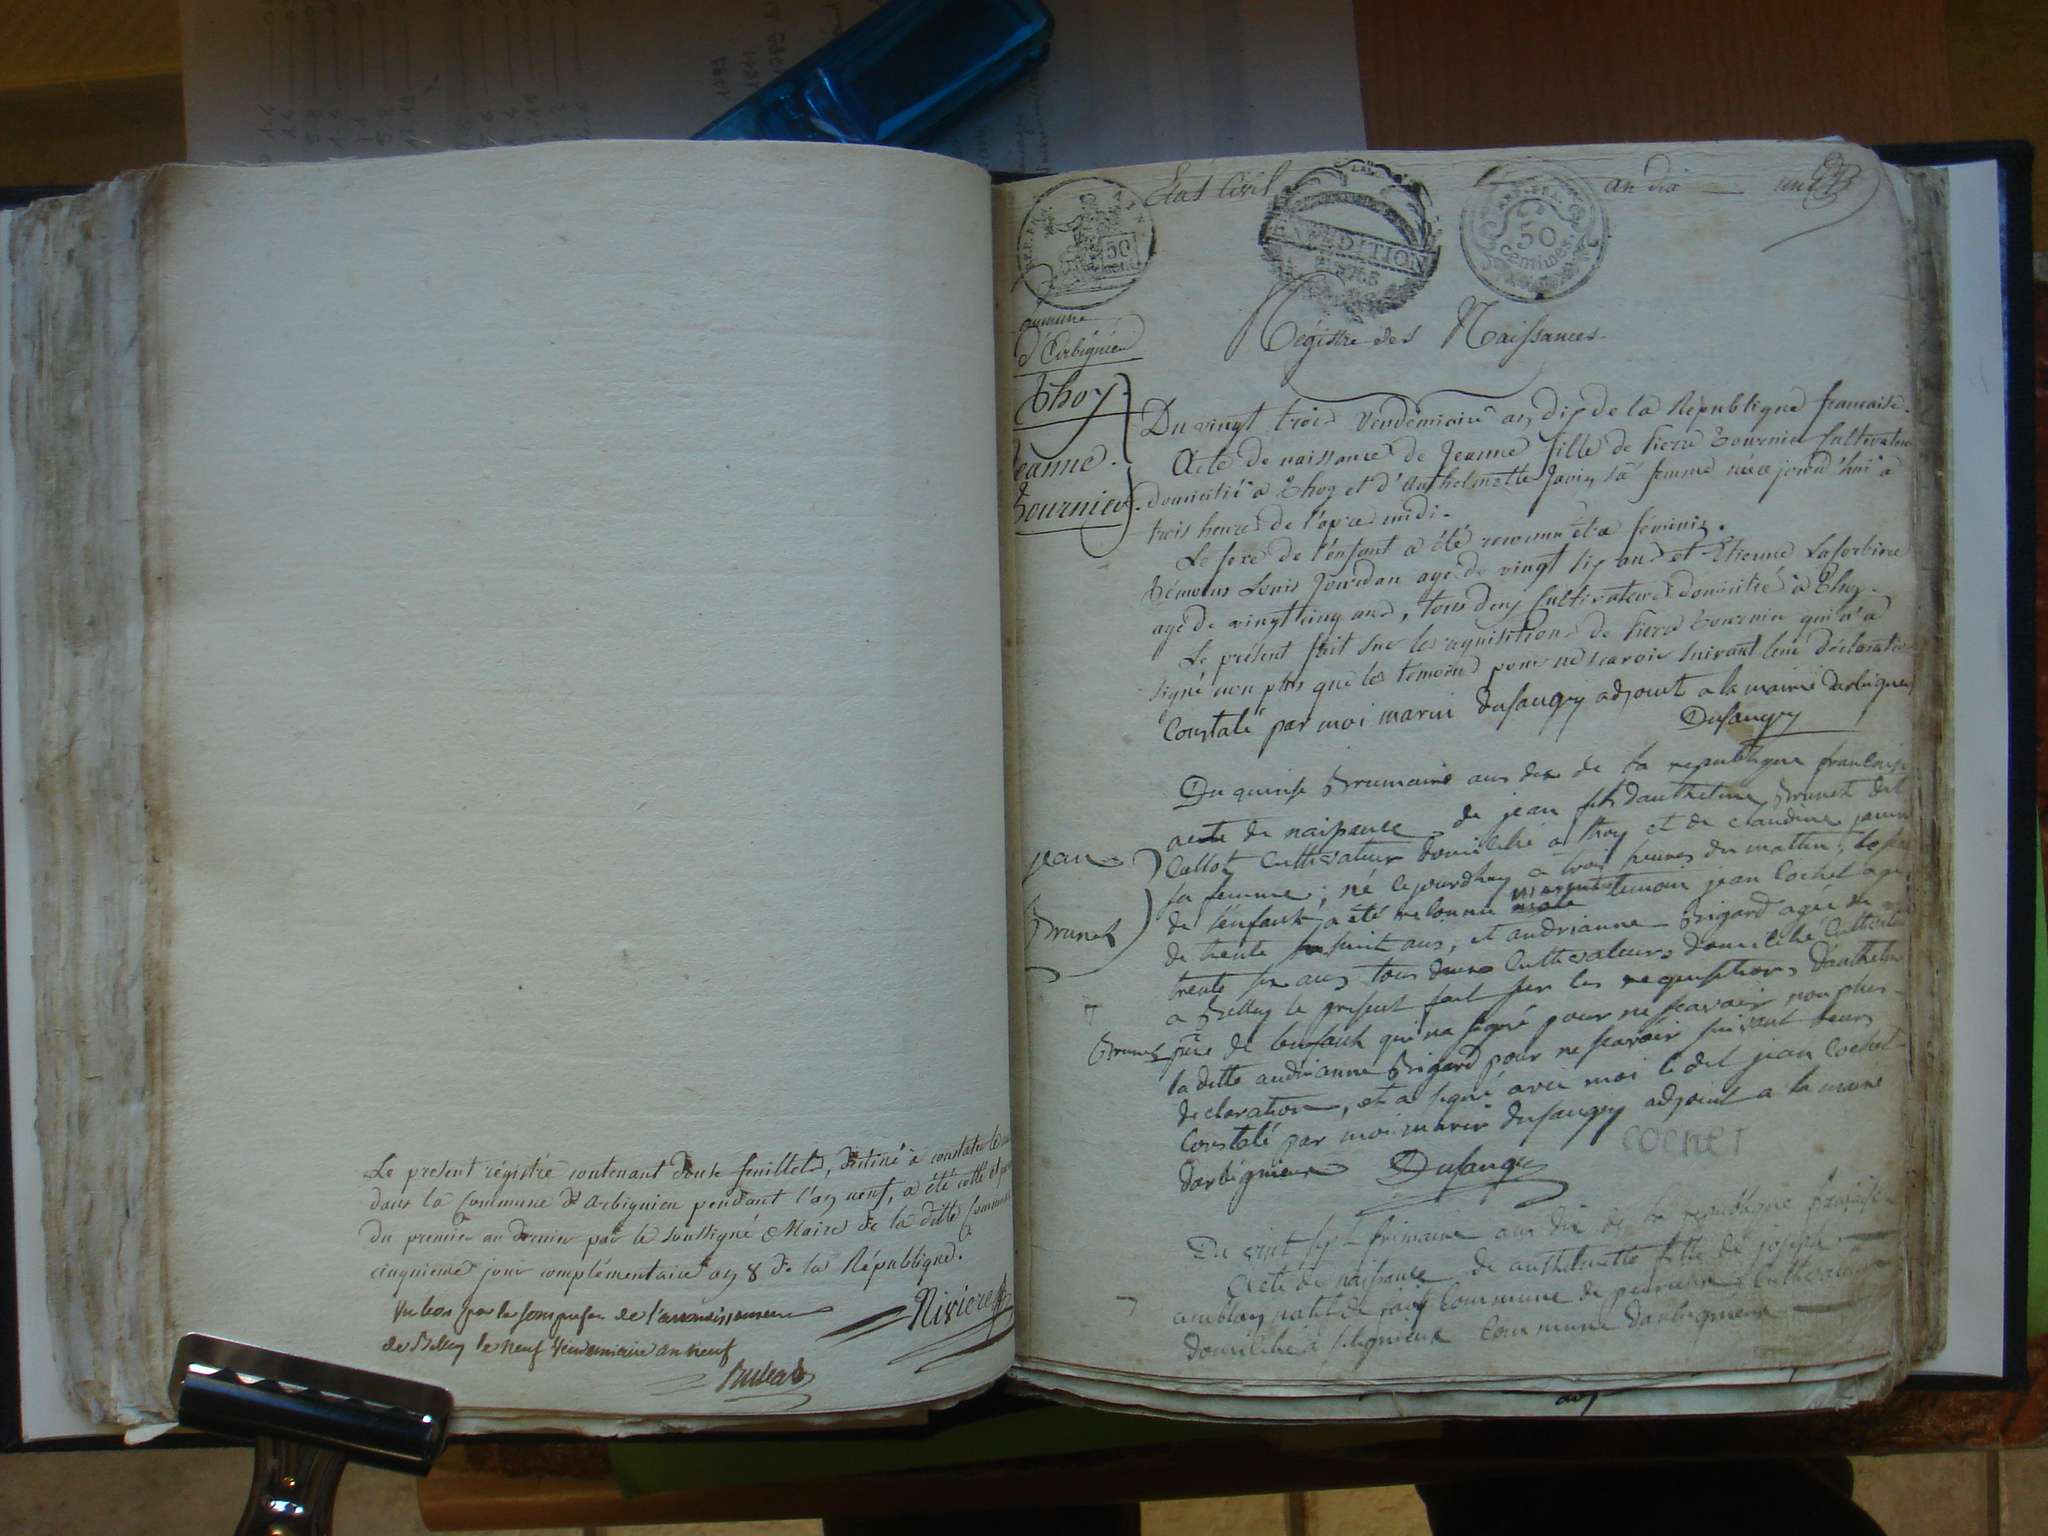 Le present régistre contenant douze feuillets, destiné à constater les
dans la Commune d'Arbignieu pendant l'an neuf, a été cotté et par
du premier au dernier par le soussigné Maire de la ditte Commune
cinquieme jour complémentaire an 8 de la République.
Rivière
Vu bon par le sous prefet de l'arrondissement
de Belley le neuf Vendemiaire an neuf
Etat Civil
an dix
REP. FRA.
50
EXPEDITION
50
Centimes.
Commune
d'Arbignieu
Régistre des Naissances.
Thoy
Jeanne
Tournier
Du vingt trois Vendémiaire an dix de la République francaise.
Acte de naissance de Jeanne fille de Pierre Tournier Cultivateur
domicilié à Thoy et d'Anthelmette Janin sa femme née ce jourd'hui à
trois heures de l'apres midi.
Le sexe de l'enfant a été reconnu être féminin.
Témoins Louis Jourdan agé de vingt six ans et Etienne Laforbine
agé de vingt cinq ans, tous deux Cultivateurs domiciliés à Thoy.
Le présent fait sur les réquisitions de Pierre Tournier qui n'a
signé non plus que les temoins pour ne scavoir suivant leur déclaration
Constaté par moi marin Dusaugey adjoint a la mairie Darbignieu
Dusaugey
jean
Brunet
Du quinse Brumaire ans dix de la republique francaise
acte de naissance de jean fils danthelme Brunet dit
Callot Cultivateur domicilié a thoy et de claudine janin
sa femme, né cejourdhuy a trois heures du mattin, le sexe
de lenfant a été reconnu temoin jean Cochet agé
de trente huit ans, et andrianne Brigard agée de
trente six ans tous deux Cultivateurs domicilié
a Belley le present fait sur les requisitions danthelme
Brunet père de lenfant qui na signé pour ne scavoir non plus
la ditte andrianne Brigard pour ne scavoir suivant leurs
declaration, et a signé avec moi le dit jean Cochet
Constaté par moi marin dusaugey adjoint a la mairie
darbignieux Dusaugey
cochet
Du vint sept frimaire ans dix de la republique francaise
Acte de naissance de anthelmette fille de joseph
natif de Commune de peyrieu Cultivateur
domicilié à Commune darbignieux